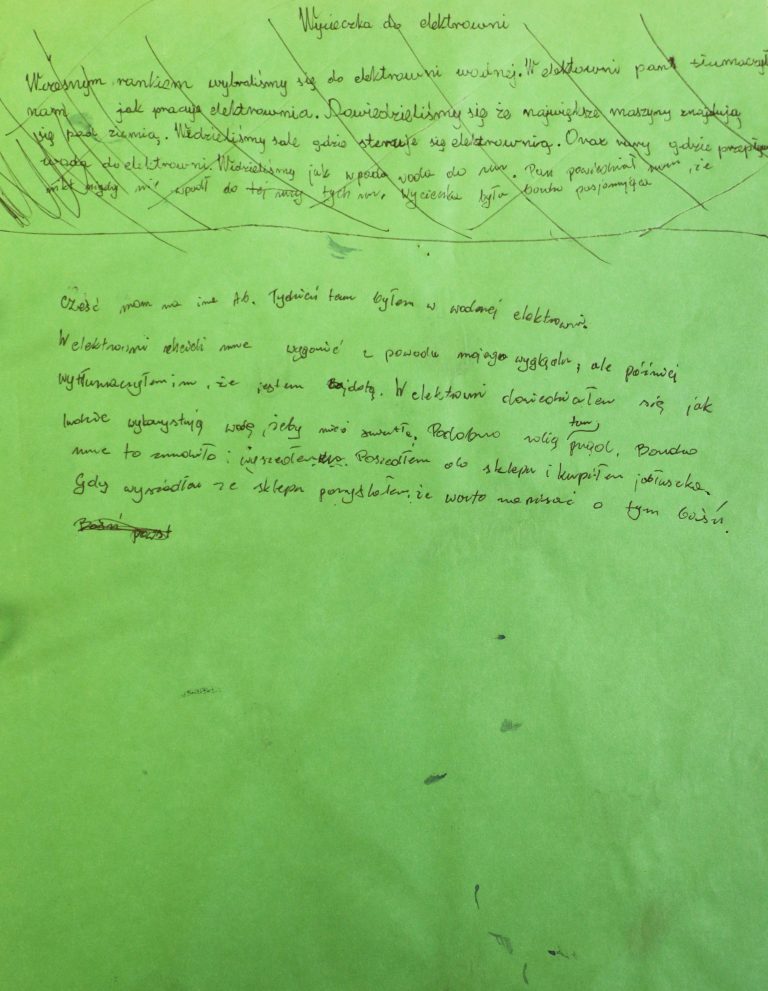 Wycieczka do elektrowni
Wczesnym rankiem wybraliśmy się do elektrowni wodnej. W elektowni pan tłumaczył
nam jak pracuje elektrownia. Dowiedzieliśmy się że największe maszyny znajdują
się pod ziemią. Widzieliśmy sale gdzie steruje się elektrownią. Oraz rury gdzie przepływa
woda do elektrowni. Widzieliśmy jak wpada woda do rur. Pan powiedział nam, że
nikt nigdy nie wpadł do tej rury tych rur. Wycieczka była bardzo pasjonująca
Cześć mam na ime Ab. Tydzień temu byłem w wodnej elektrowni.
W elektrowni chcieli mnie wygonić z powodu mojego wyglądu, ale później
wytłumaczyłem im, że jestem . W elektrowni dowiedziałem się jak
ludzie wykorzystują wodę, żeby mieć światło. Podobno robią tam prąd. Bardzo
mnie to znudziło i wyszedłem. Poszedłem do sklepu i kupiłem jabłuszka.
Gdy wyszedłem ze sklepu pomyślałem, że warto napisać o tym baśń.
Baśń powst